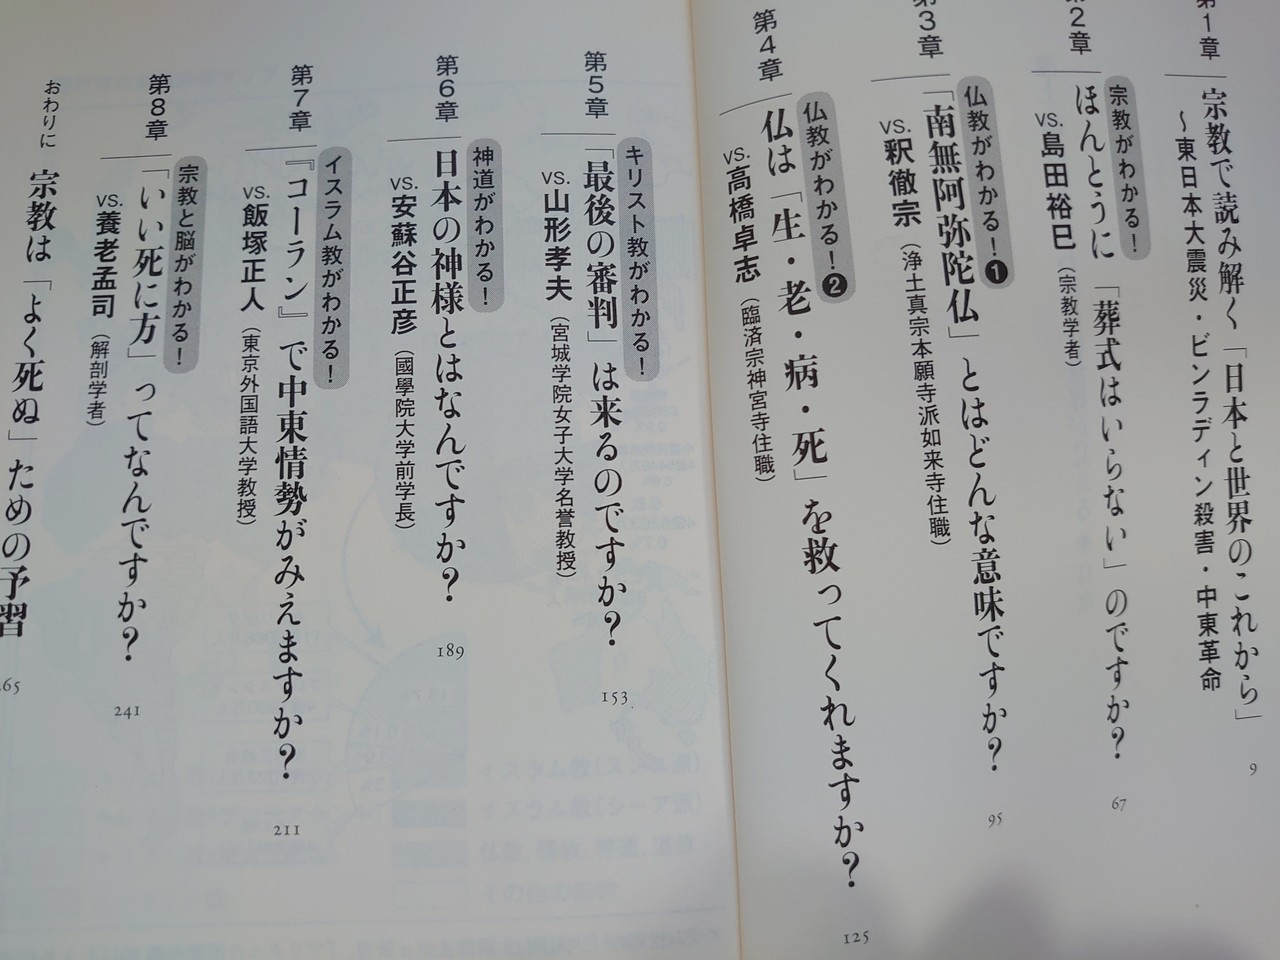 第1章
宗教で読み解く「日本と世界のこれから」
〜東日本大震災・ビンラディン殺害・中東革命
9
第2章
宗教がわかる!
ほんとうに「葬式はいらない」のですか?
vs.島田裕巳(宗教学者)
67
第3章
仏教がわかる!❶
「南無阿弥陀仏」とはどんな意味ですか?
vs.釈徹宗(浄土真宗本願寺派如来寺住職)
95
第4章
仏教がわかる!❷
仏は「生・老・病・死」を救ってくれますか?
vs.高橋卓志(臨済宗神宮寺住職)
125
第5章
キリスト教がわかる!
「最後の審判」は来るのですか?
vs.山形孝夫(宮城学院女子大学名誉教授)
153
第6章
神道がわかる!
日本の神様とはなんですか?
vs.安蘇谷正彦(國學院大学前学長)
189
第7章
イスラム教がわかる!
『コーラン』で中東情勢がみえますか?
vs.飯塚正人(東京外国語大学教授)
211
第8章
宗教と脳がわかる!
「いい死に方」ってなんですか?
vs.養老孟司(解剖学者)
241
おわりに 宗教は「よく死ぬ」ための予習
265
イスラム教(スンニ派)
イスラム教(シーア派)